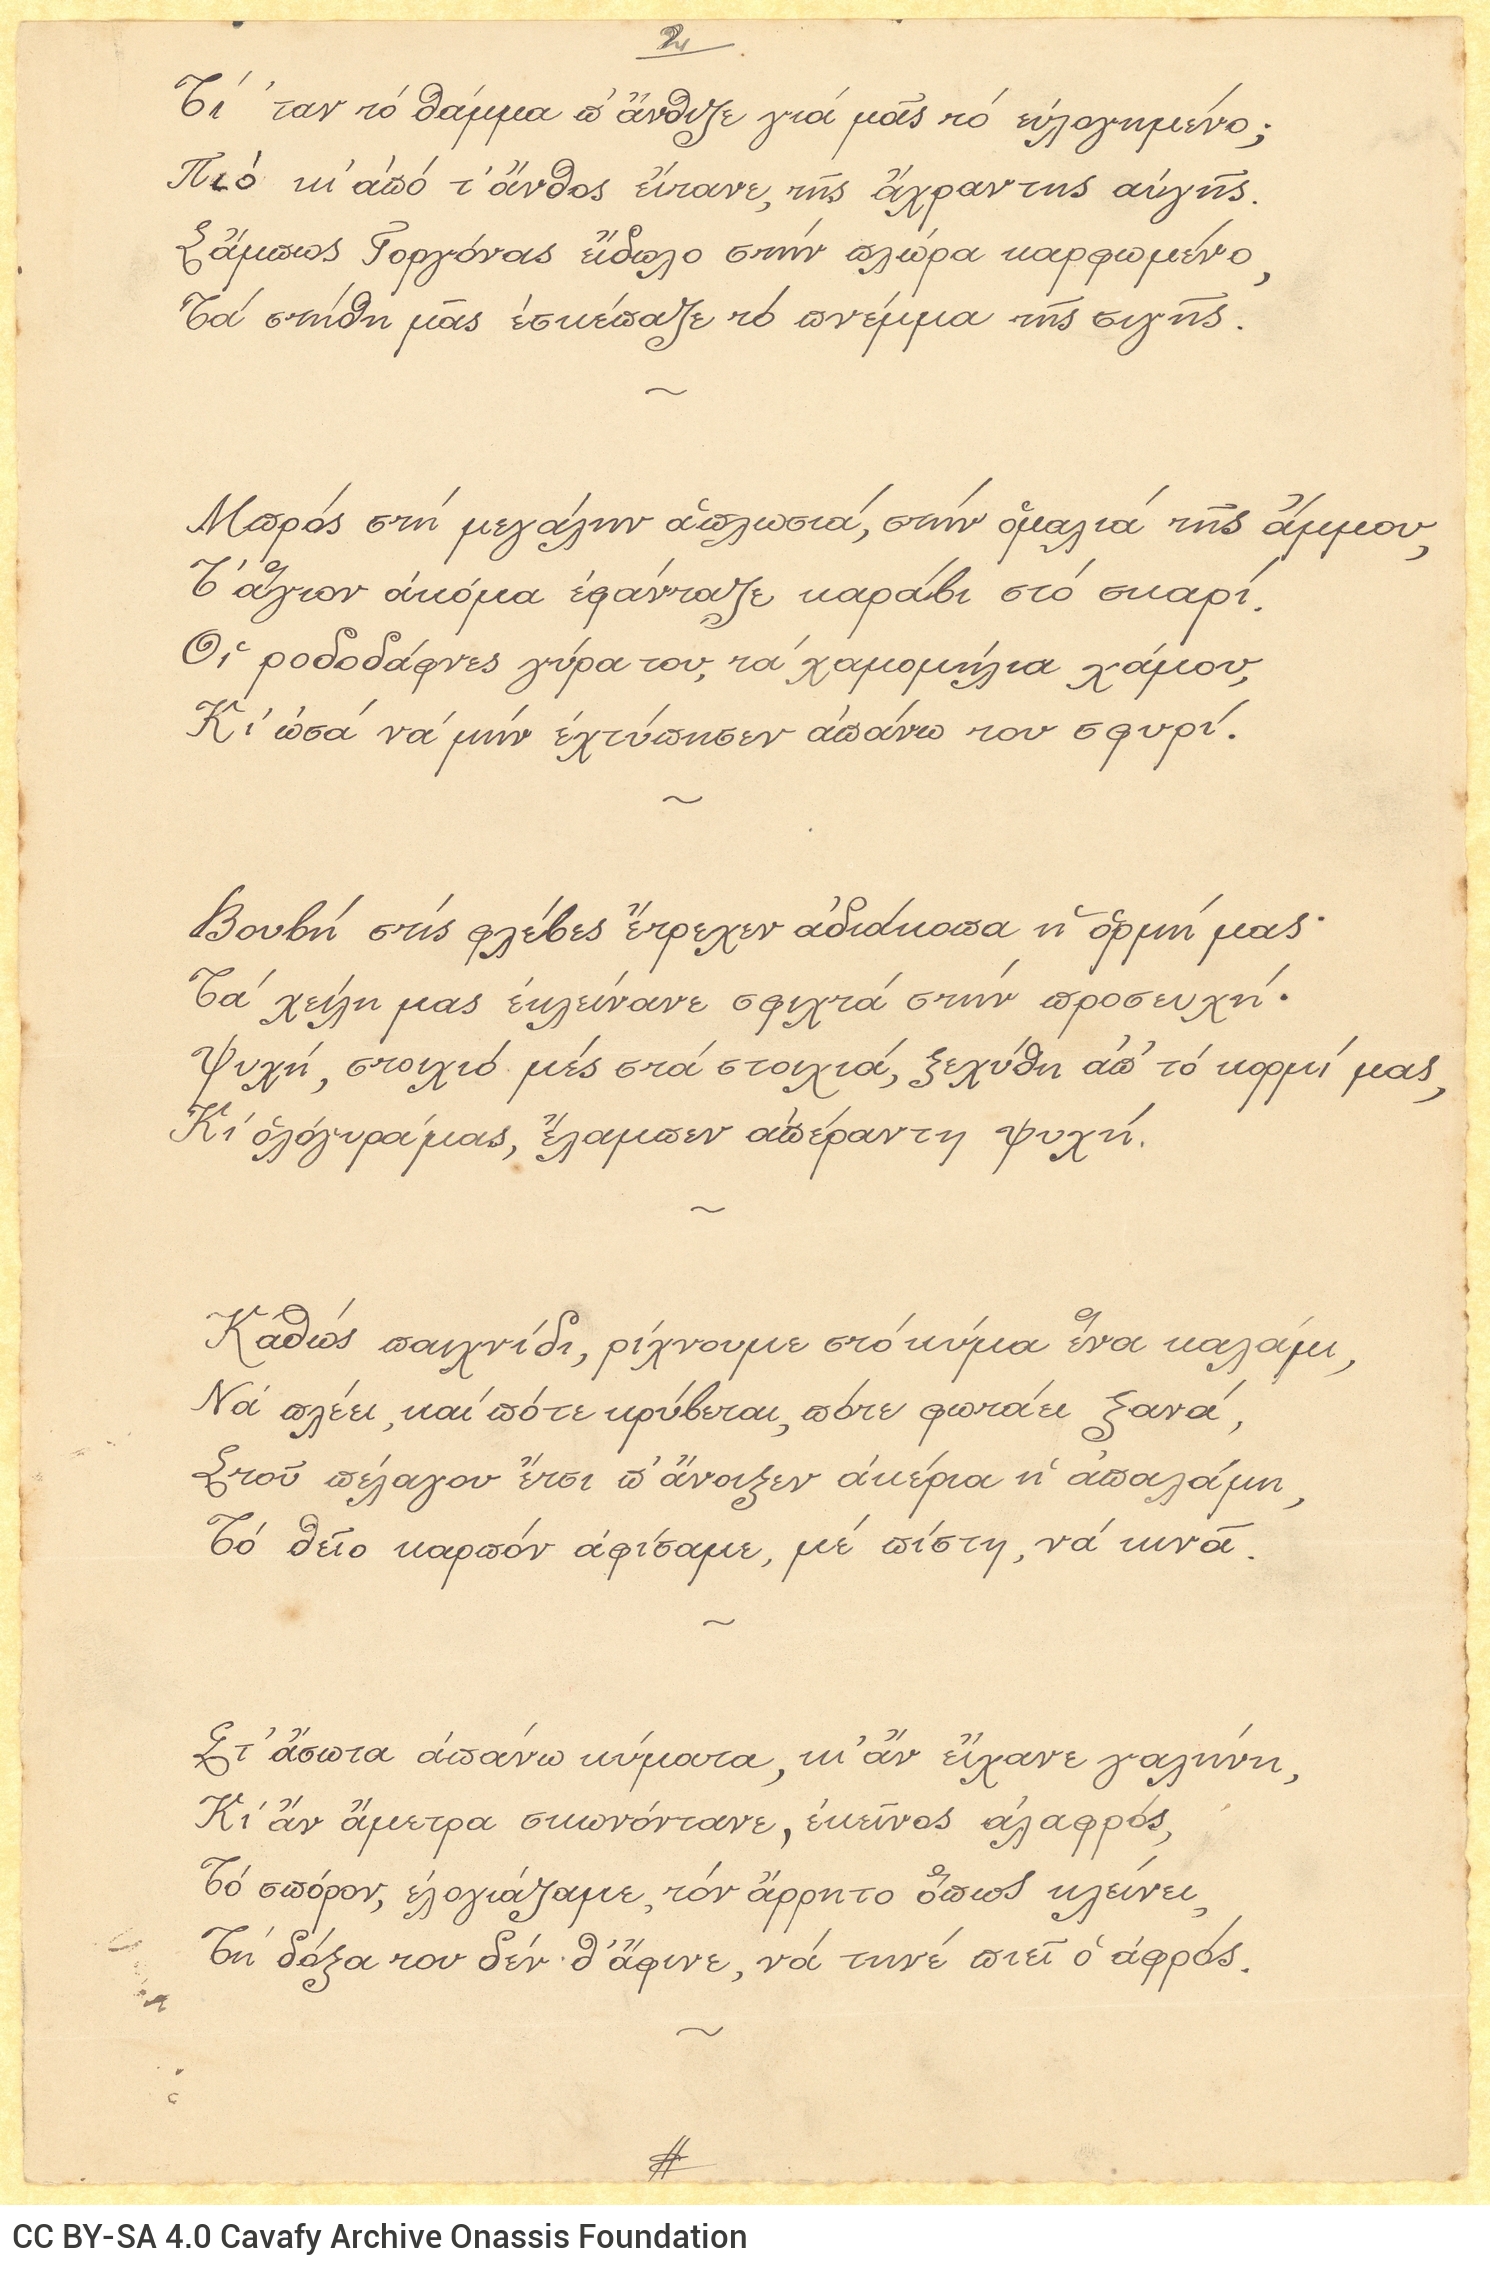 2
Τί ’ταν τό θάμμα π’ ἄνθιζε γιά μᾶς τό εὐλογημένο;
Πιό κι’ ἀπό τ’ ἄνθος εἴτανε, τῆς ἄχραντης αὐγῆς.
Σἄμπως Γοργόνας εἴδωλο στήν πλώρα καρφωμένο,
Τά στήθη μᾶς ἐσκέπαζε τό πνέμμα τῆς σιγῆς.
~
Μπρός στή μεγάλην ἁπλωσιά, στήν ὁμαλιά τῆς ἄμμου,
Τ’ ἅγιον ἀκόμα ἐφάνταζε καράβι στό σκαρί.
Οἱ ροδοδάφνες γύρα του, τά χαμομήλια χάμου,
Κι’ ὡσά νά μήν ἐχτύπησεν ἀπάνω του σφυρί.
~
Βουβή στίς φλέβες ἔτρεχεν ἀδιάκοπα ἡ ὁρμή μας·
Τά χείλη μας ἐκλείνανε σφιχτά στήν προσευχή·
Ψυχή, στοιχιό μές στά στοιχιά, ξεχύθη ἀπ’ τό κορμί μας,
Κι’ ὁλόγυρά μας, ἔλαμπεν ἀπέραντη ψυχή.
~
Καθώς παιχνίδι, ρίχνουμε στό κύμα ἕνα καλάμι,
Νά πλέει, καί πότε κρύβεται, πότε φωτάει ξανά,
Στοῦ πέλαγου ἔτσι π’ ἄνοιξεν ἀκέρια ἡ ἀπαλάμη,
Τό θεῖο καρπόν ἀφίσαμε, μέ πίστη, νά κινᾶ.
~
Στ’ ἄσωτα ἀπάνω κύματα, κι’ ἄν εἴχανε γαλήνη,
Κι’ ἄν ἄμετρα σκωνόντανε, ἐκεῖνος ἀλαφρός,
Τό σπόρον, ἐλογιάζαμε, τόν ἄρρητο ὅπως κλείνει,
Τή δόξα του δέν θ’ ἄφινε, νά τηνέ πιεῖ ὁ ἀφρός.
~
#
CC BY-SA 4.0 Cavafy Archive Onassis Foundation